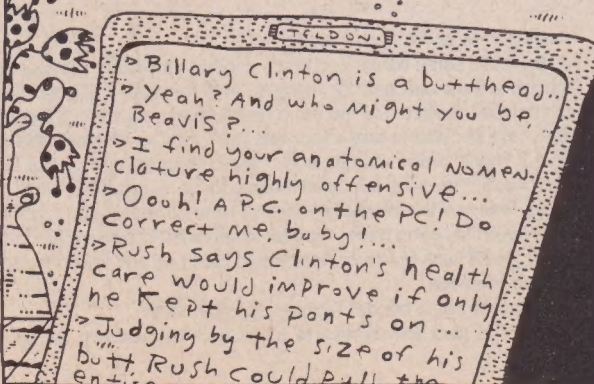 TELDON
> Billary Clinton is a butthead..
> Yeah? And who might you be,
Beavis?...
> I find your anatomical nomen-
clature highly offensive...
> Oooh! A P.C. on the PC! Do
correct me, baby!...
> Rush says Clinton's health
care would improve if only
he kept his pants on...
> Judging by the size of his
butt, Rush could pull the
entire